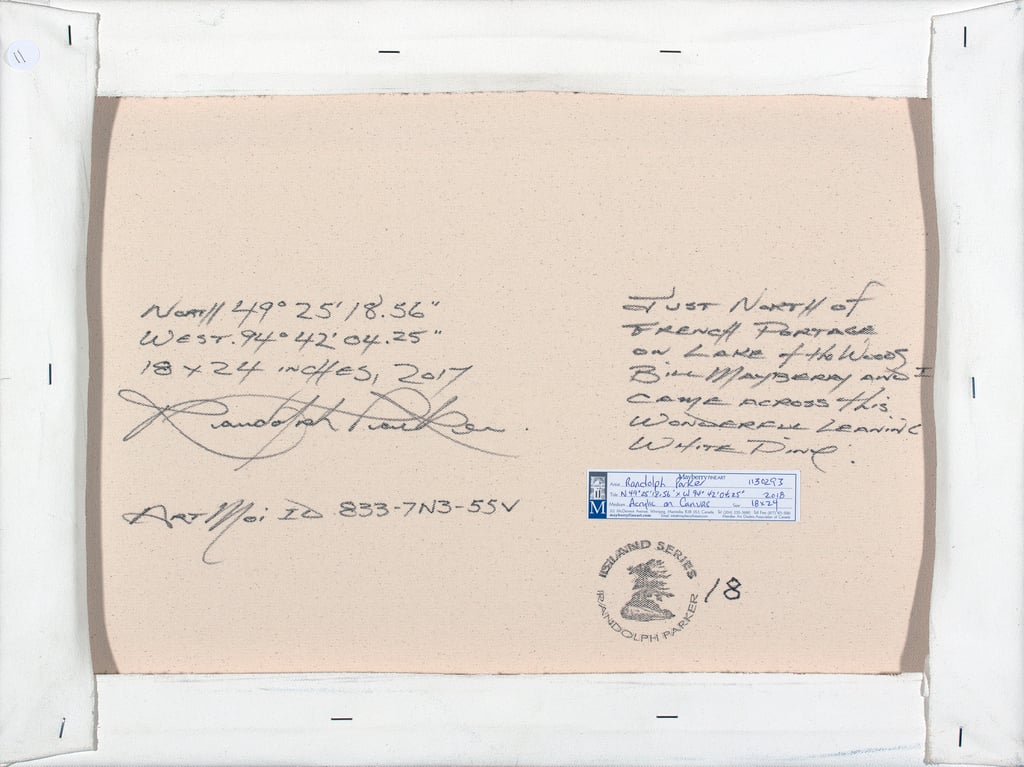 11
North 49° 25' 18.56"
West. 94° 42' 04.25"
18 x 24 inches, 2017
Randolph Parker.
Art Moi ID 833-7N3-55V
Just North of
French Portage
on Lake of the Woods
Bill Mayberry and I
came across this
wonderful leaning
White Pine.
Mayberry FINE ART
Artist Randolph Parker 1130293
Title N 49° 25' 18.56" x W 94° 42' 04.25" 2018
Medium Acrylic on Canvas Size 18x24
M
mayberryfineart.com
ISLAND SERIES
RANDOLPH PARKER
18